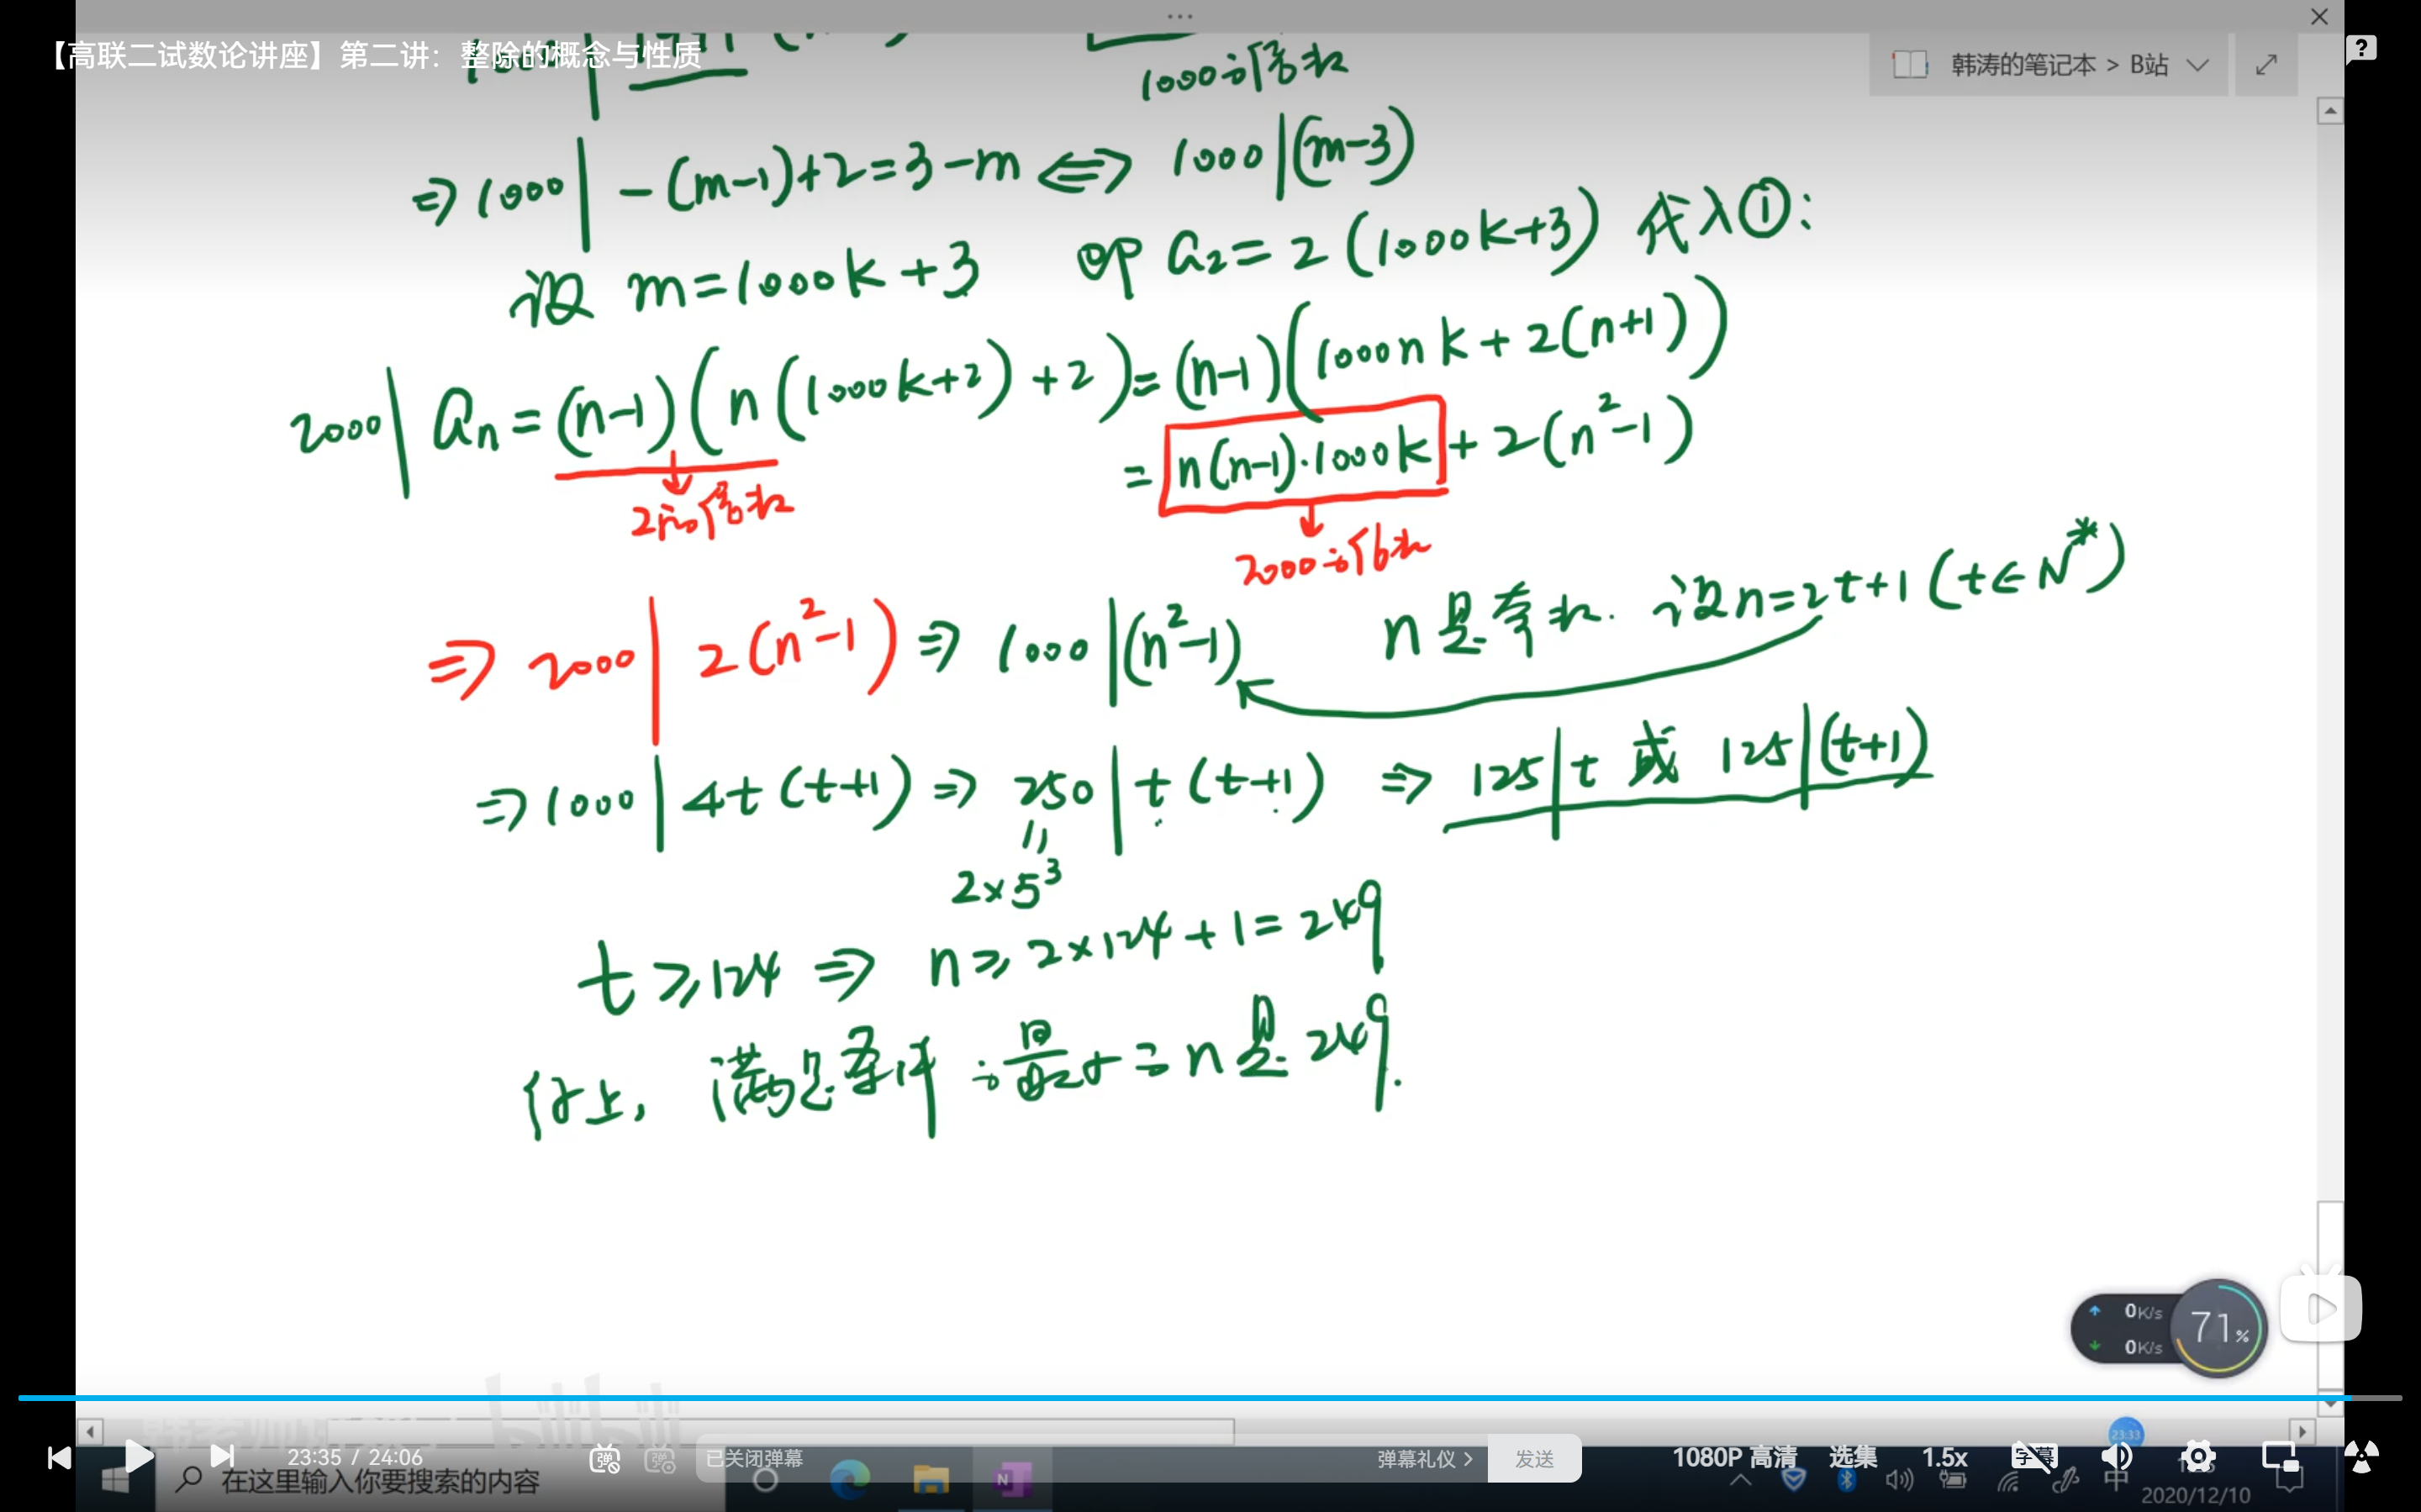 【高联二试数论讲座】第二讲：整除的概念与性质
韩涛的笔记本 > B站
1000的倍数
⇒ 1000 | -(m-1)+2=3-m ⇔ 1000 | (m-3)
设 m=1000k+3 即 a₂=2(1000k+3) 代入①:
2000 | aₙ=(n-1)(n(1000k+2)+2)=(n-1)(1000nk+2(n+1))
=n(n-1)·1000k+2(n²-1)
2的倍数
2000的倍数
⇒ 2000 | 2(n²-1) ⇒ 1000 | (n²-1) n是奇数. 设n=2t+1(t∈N*)
⇒ 1000 | 4t(t+1) ⇒ 250 | t(t+1) ⇒ 125 | t 或 125 | (t+1)
2×5³
t≥124 ⇒ n≥2×124+1=249
综上, 满足条件的最小的n是249.
0K/s
0K/s
71%
bilibili
23:35 / 24:06
已关闭弹幕
弹幕礼仪 >
发送
1080P 高清
选集
1.5x
字幕
23:33
在这里输入你要搜索的内容
中
2020/12/10